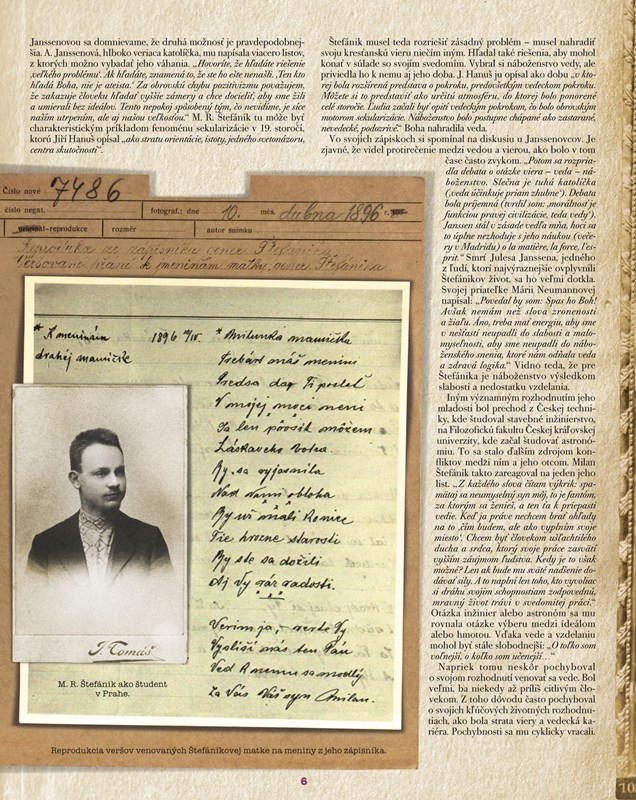 Janssenovou sa domnievame, že druhá možnosť je pravdepodobnej-
šia. A. Janssenová, hlboko veriaca katolíčka, mu napísala viacero listov,
z ktorých možno vybadať jeho váhania. „Hovoríte, že hľadáte riešenie
‚veľkého problému‘. Ak hľadáte, znamená to, že ste ho ešte nenašli. ‚Ten kto
hľadá Boha, nie je ateista.‘ Za obrovskú chybu pozitivizmu považujem,
že zakazuje človeku hľadať vyššie zámery a chce docieliť, aby sme žili
a umierali bez ideálov. Tento nepokoj spôsobený tým, čo nevidíme, je síce
naším utrpením, ale aj našou veľkosťou.“ M. R. Štefánik tu môže byť
charakteristickým príkladom fenoménu sekularizácie v 19. storočí,
ktorú Jiří Hanuš opísal „ako stratu orientácie, istoty, jedného svetonázoru,
centra skutočnosti“.
Štefánik musel teda rozriešiť zásadný problém – musel nahradiť
svoju kresťanskú vieru niečím iným. Hľadal také riešenia, aby mohol
konať v súlade so svojím svedomím. Vybral si náboženstvo vedy, ale
priviedla ho k nemu aj jeho doba. J. Hanuš ju opísal ako dobu „v kto-
rej bola rozšírená predstava o pokroku, predovšetkým vedeckom pokroku.
Môžete si to predstaviť ako určitú atmosféru, do ktorej bolo ponorené
celé storočie. Ľudia začali byť opití vedeckým pokrokom, čo bolo obrovským
motorom sekularizácie. Náboženstvo bolo postupne chápané ako zastarané,
nevedecké, podozrivé.“ Boha nahradila veda.
Vo svojich zápiskoch si spomínal na diskusiu u Janssenovcov. Je
zjavné, že videl protirečenie medzi vedou a vierou, ako bolo v tom
čase často zvykom. „Potom sa rozpria-
dla debata o otázke viera – veda – ná-
boženstvo. Slečna je tuhá katolíčka
(veda účinkuje priam zhubne). Debata
bola príjemná (tvrdil som: ‚morálnosť je
funkciou pravej civilizácie, teda vedy‘).
Janssen stál v zásade vedľa mňa, hoci sa
to úplne nezhoduje s jeho náukou (veče-
ry v Madridu) o la matière, la force, l'es-
prit.“ Smrť Julesa Janssena, jedného
z ľudí, ktorí najvýraznejšie ovplyvnili
Štefánikov život, sa ho veľmi dotkla.
Svojej priateľke Márii Neumannovej
napísal: „Povedal by som: Spas ho Boh!
Avšak nemám než slova zronenosti
a žiaľu. Áno, treba mať energiu, aby sme
v nešťastí neupadli do slabosti a malo-
myseľnosti, aby sme neupadli do nábo-
ženského snenia, ktoré nám odňala veda
a zdravá logika.“ Vidno teda, že pre
Štefánika je náboženstvo výsledkom
slabosti a nedostatku vzdelania.
Iným významným rozhodnutím jeho
mladosti bol prechod z Českej techni-
ky, kde študoval stavebné inžinierstvo,
na Filozofickú fakultu Českej kráľovskej
univerzity, kde začal študovať astronó-
miu. To sa stalo ďalším zdrojom kon-
fliktov medzi ním a jeho otcom. Milan
Štefánik takto zareagoval na jeden jeho
list. „Z každého slova čítam výkrik: spa-
mätaj sa neumyselný syn môj, to je fantóm,
za ktorým sa ženieš, a ten ťa k priepasti
vedie. Keď ja práve nechcem brať ohľady
na to ‚čím budem, ale ako vyplním svoje
miesto‘. Chcem byť človekom ušľachtilého
ducha a srdca, ktorý svoje práce zasvätí
vyšším záujmom ľudstva. Kedy je to však
možné? Len ak bude mu sväté nadšenie do-
dávať sily. A to naplní len toho, kto vyvoliac
si dráhu svojim schopnostiam zodpovednú,
mravný život trávi v svedomitej práci.“
Otázka inžinier alebo astronóm sa mu
rovnala otázke výberu medzi ideálom
alebo hmotou. Vďaka vede a vzdelaniu
mohol byť stále slobodnejší: „O toľko som
voľnejší, o koľko som učenejší…“
Napriek tomu neskôr pochyboval
o svojom rozhodnutí venovať sa vede. Bol
veľmi, ba niekedy až príliš citlivým člo-
vekom. Z toho dôvodu často pochyboval
o svojich kľúčových životných rozhodnu-
tiach, ako bola strata viery a vedecká ka-
riéra. Pochybnosti sa mu cyklicky vracali.
Číslo nové 7486
číslo negat.
fotograf.: dne 10. měs. dubna 1896 r.
original-reprodukce rozměr autor snímku
Reprodukce ze zápisníku gener. Štefánika
Veršované přání k meninám matky gener. Štefánika
* K meninám 1896 10/IV.
drahej mamičke
* Milunká mamička
Trebárs máš meniny
Predsa dar Ti poslať
V mojej moci není
Ja len pôosiť môžem
Láskavého Boha
By sa vyjasnila
Nad vami obloha
By už mali konice
Tie hrozné starosti
By ste sa dožili
Aj vy ráz radosti.
Verím ja, verte Vy
Vyslyší nás ten Pán
Ved k nemu sa modlý
Za Vás Váš syn Milan.
J. Tomáš
M. R. Štefánik ako študent
v Prahe.
Reprodukcia veršov venovaných Štefánikovej matke na meniny z jeho zápisníka.
6
10